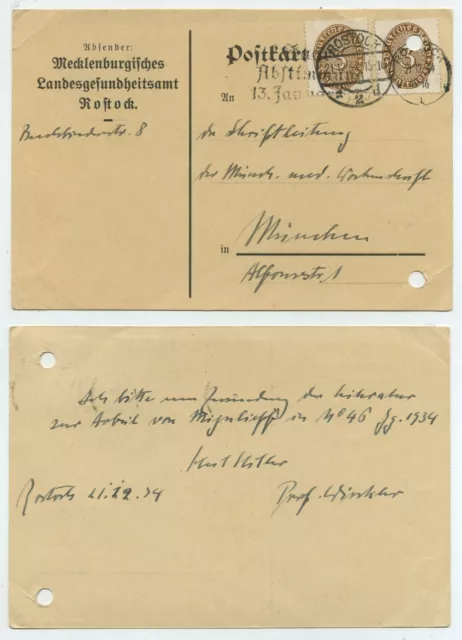 Absender:
Mecklenburgisches
Landesgesundheitsamt
Rostock.
8
Postkarte
Abstimmung
13. Januar
ROSTOCK
2 d
An
die Schriftleitung
der Münch. med. Wochenschrift
in München
Alfonsstr. 1
Ich bitte um Zusendung der Literatur
zur Arbeit von in No 46 Jg. 1934
Heil Hitler
Rostock 21.12.34
Prof. Winkler